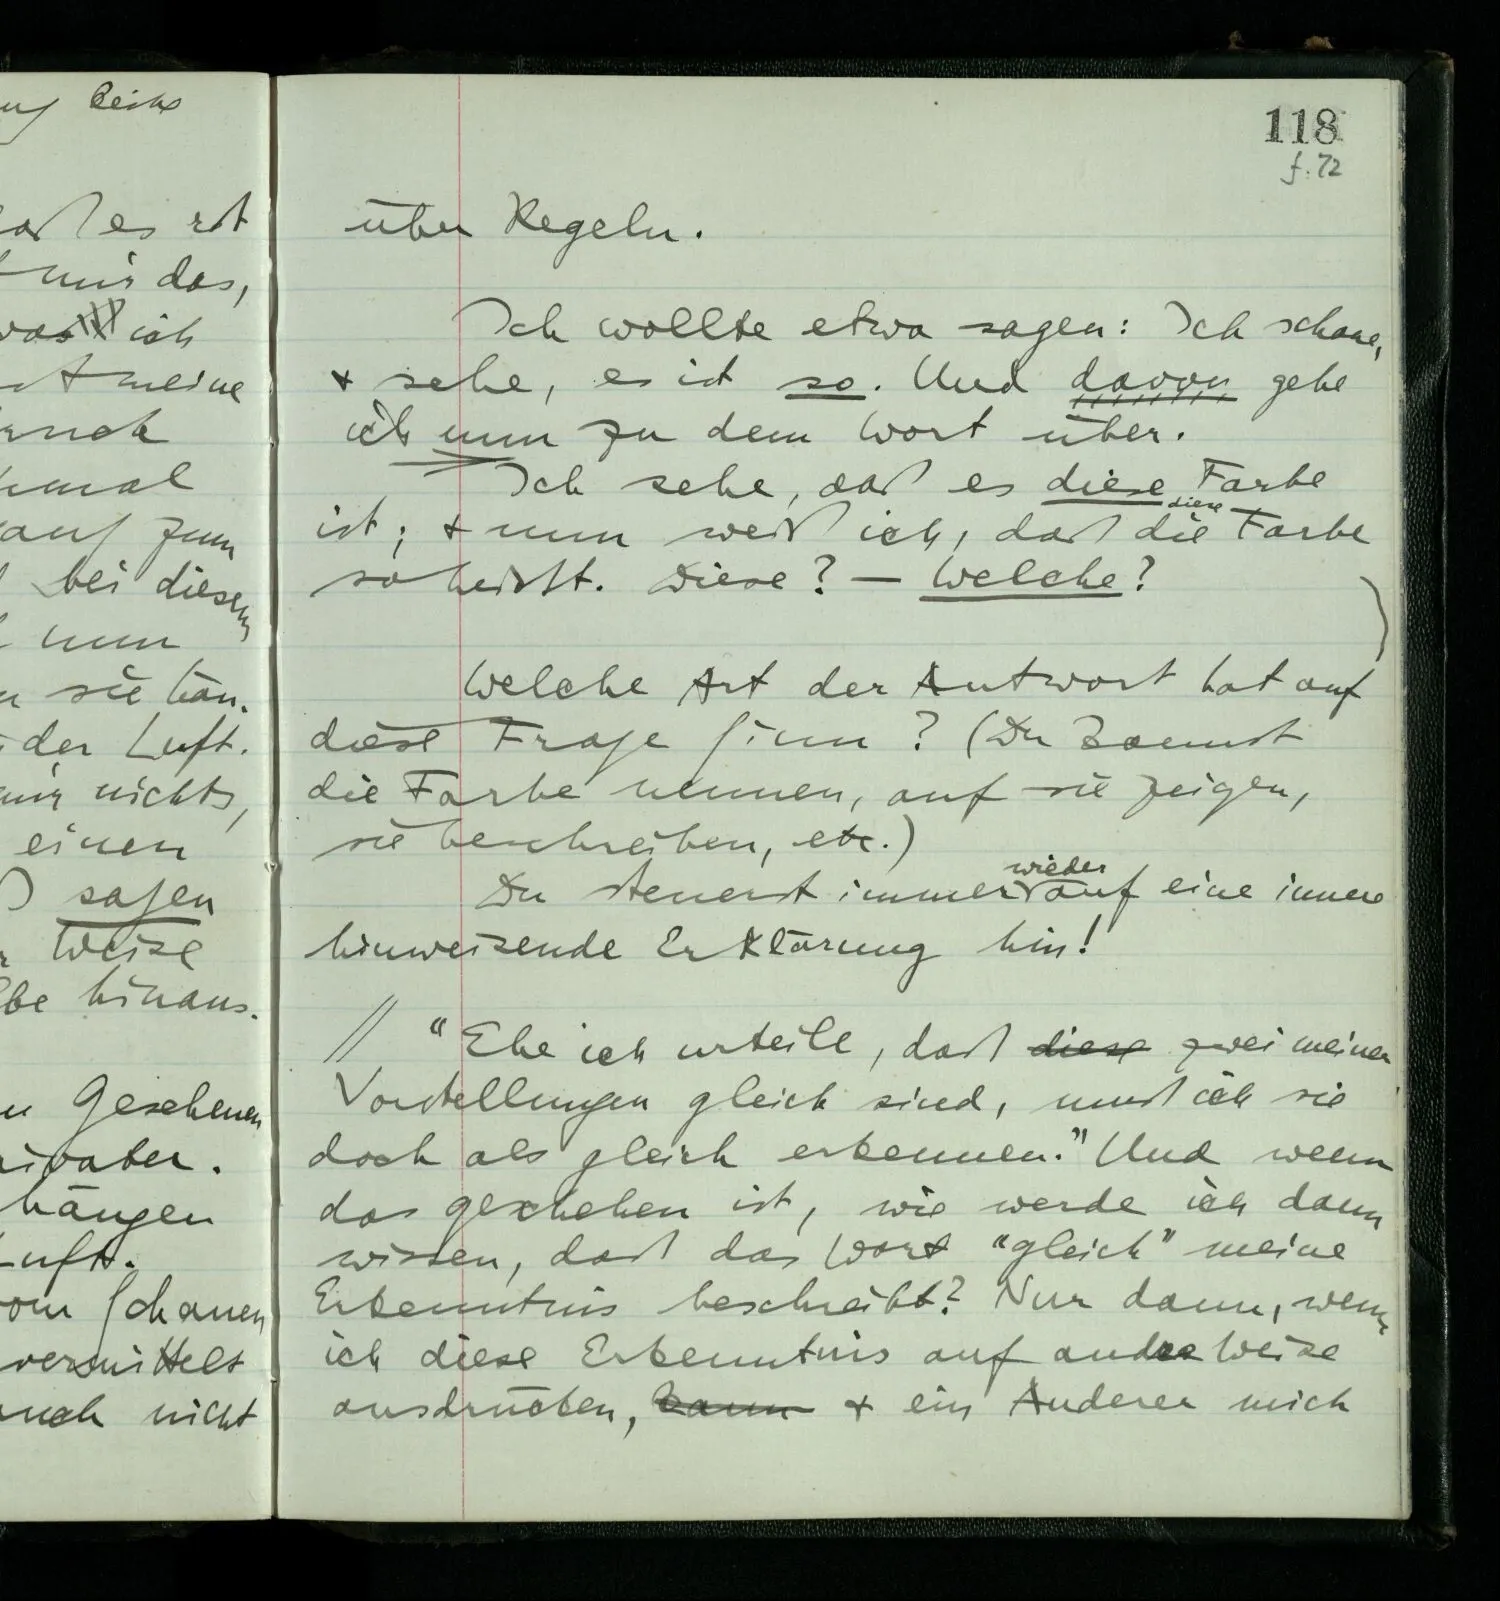 ung leiht
daß es rot
mir das,
was ich
ist meine
nach
mal
auf zum
bei diesem
nun
sie hän-
der Luft.
mir nichts,
einen
sagen
Weise
hinaus.
Gesehenen
privater.
hängen
Luft.
vom Schauen
vermittelt
auch nicht
118
f. 72
über Regeln.
Ich wollte etwa sagen: Ich schaue,
& sehe, es ist so. Und davon gehe
ich nun zu dem Wort über.
Ich sehe, daß es diese Farbe
diese
ist; & nun weiß ich, daß die Farbe
so heißt. Diese? — Welche?
Welche Art der Antwort hat auf
diese Frage Sinn? (Du kannst
die Farbe nennen, auf sie zeigen,
sie beschreiben, etc.)
wieder
Du steuerst immer auf eine innere
hinweisende Erklärung hin!
// "Ehe ich urteile, daß diese zwei meiner
Vorstellungen gleich sind, muß ich sie
doch als gleich erkennen." Und wenn
das geschehen ist, wie werde ich dann
wissen, daß das Wort "gleich" meine
Erkenntnis beschreibt? Nur dann, wenn
ich diese Erkenntnis auf andre Weise
ausdrücken, kann & ein Anderer mich